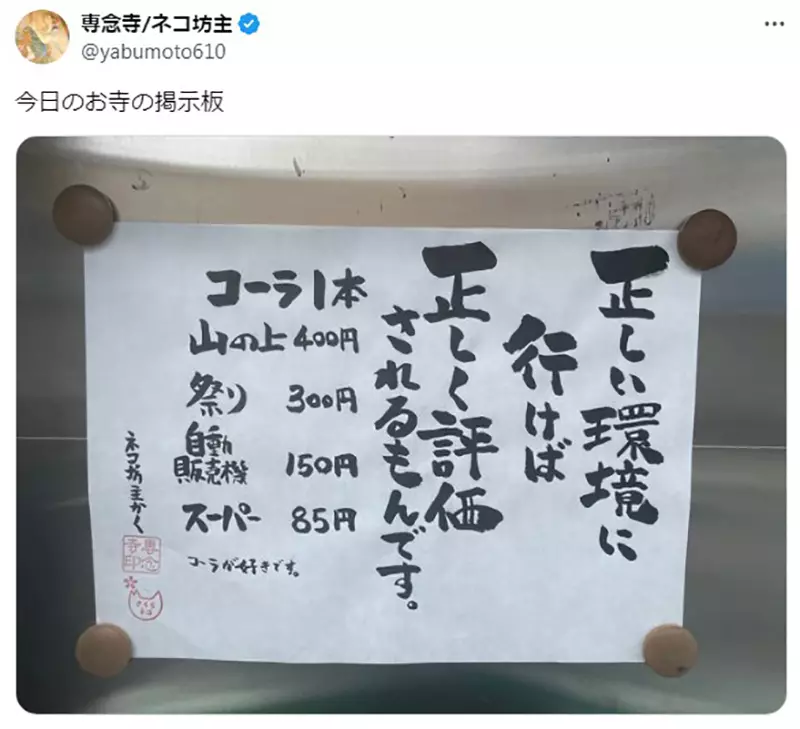 専念寺/ネコ坊主
@yabumoto610
今日のお寺の掲示板
正しい環境に
行けば
正しく評価
されるもんです。
コーラ1本
山の上 400円
祭り 300円
自動
販売機 150円
スーパー 85円
コーラが好きです。
ネコ坊主かく
専念
寺印